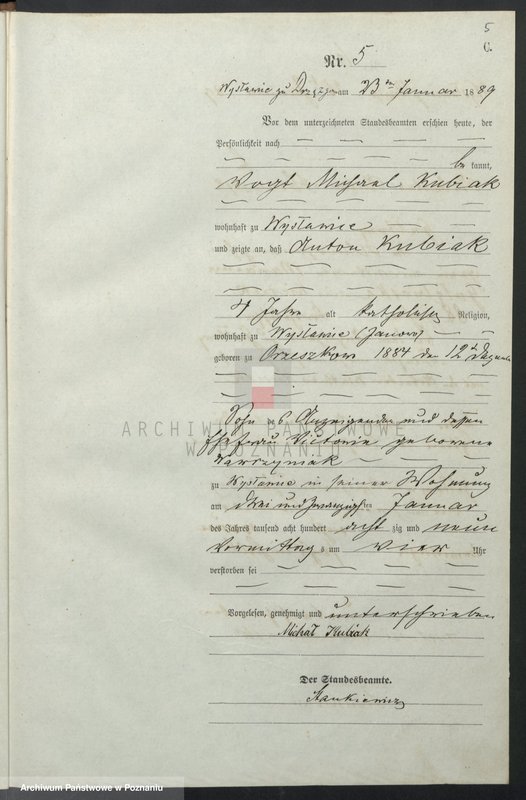 5
C.
Nr. 5
am 23ten Januar 1889
Vor dem unterzeichneten Standesbeamten erschien heute, der
Persönlichkeit nach
bekannt,
Vogt Michael Kubiak
wohnhaft zu Wysławice
und zeigte an, daß Anton Kubiak
4 Jahre alt katholisch Religion,
wohnhaft zu Wysławice (Janowo)
geboren zu Orzeszkowo 1884 den 12ten Dezember
Sohn des Anzeigenden und dessen
Ehefrau Victorie geborene
Wawrzyniak
zu Wysławice in seiner Wohnung
am drei und zwanzigsten Januar
des Jahres tausend acht hundert acht zig und neun
Vormittags um vier Uhr
verstorben sei
Vorgelesen, genehmigt und unterschrieben
Michał Kubiak
Der Standesbeamte.
Stankiewicz
ARCHIWUM PAŃSTWOWE
W POZNANIU
Archiwum Państwowe w Poznaniu